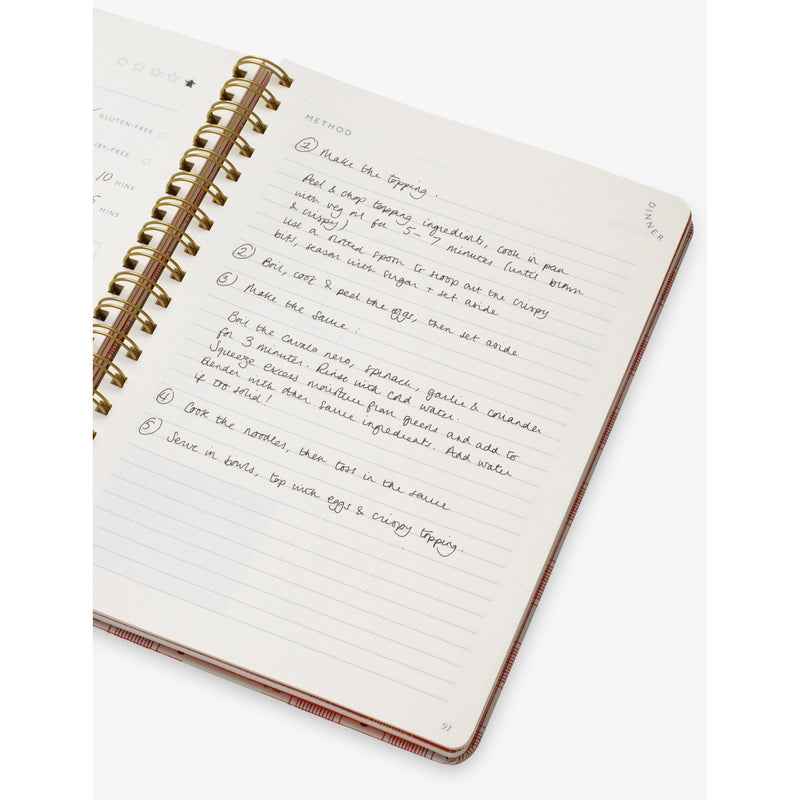 GLUTEN-FREE
RY-FREE
10 MINS
5 MINS
METHOD
DINNER
① Make the topping.
Peel & chop topping ingredients, cook in pan
with veg oil for 5-7 minutes (until brown
& crispy)
Use a slotted spoon to scoop out the crispy
bits, season with sugar + set aside
② Boil, cool & peel the eggs, then set aside
③ Make the sauce:
Boil the cavalo nero, spinach, garlic & coriander
for 3 minutes. Rinse with cold water.
Squeeze excess moisture from greens and add to
blender with other sauce ingredients. Add water
if too solid!
④ Cook the noodles, then toss in the sauce
⑤ Serve in bowls, top with eggs & crispy topping.
91